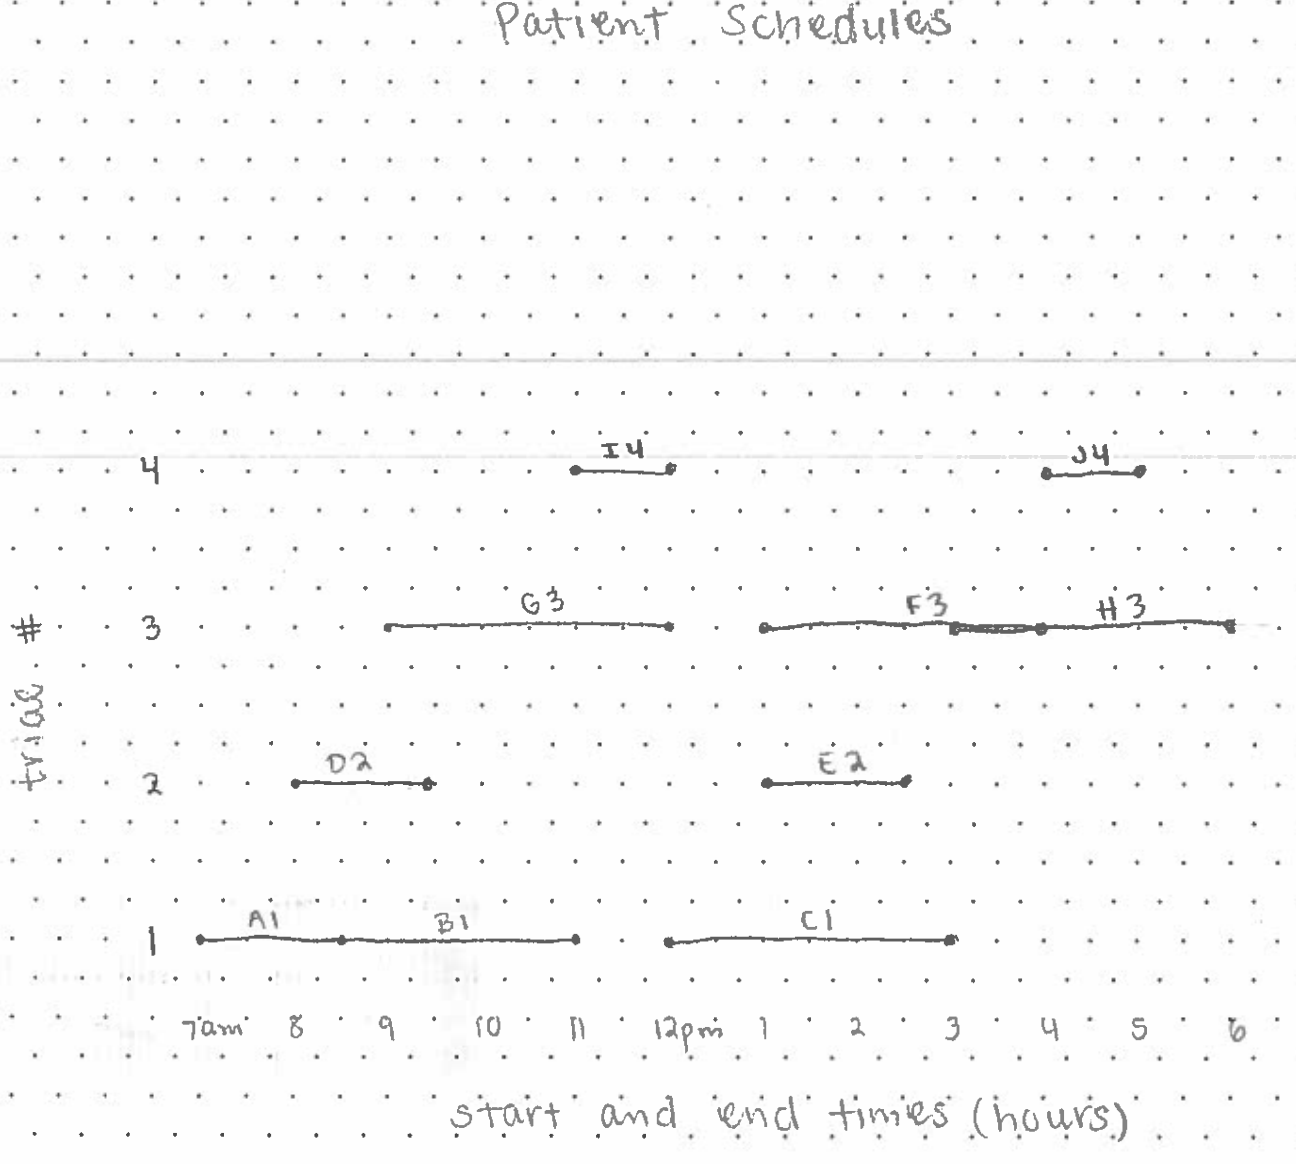 Patient Schedules
I4
J4
4
G3
F3
H3
# 3
trial
D2
E2
2
A1
B1
C1
1
7am 8 9 10 11 12pm 1 2 3 4 5 6
start and end times (hours)